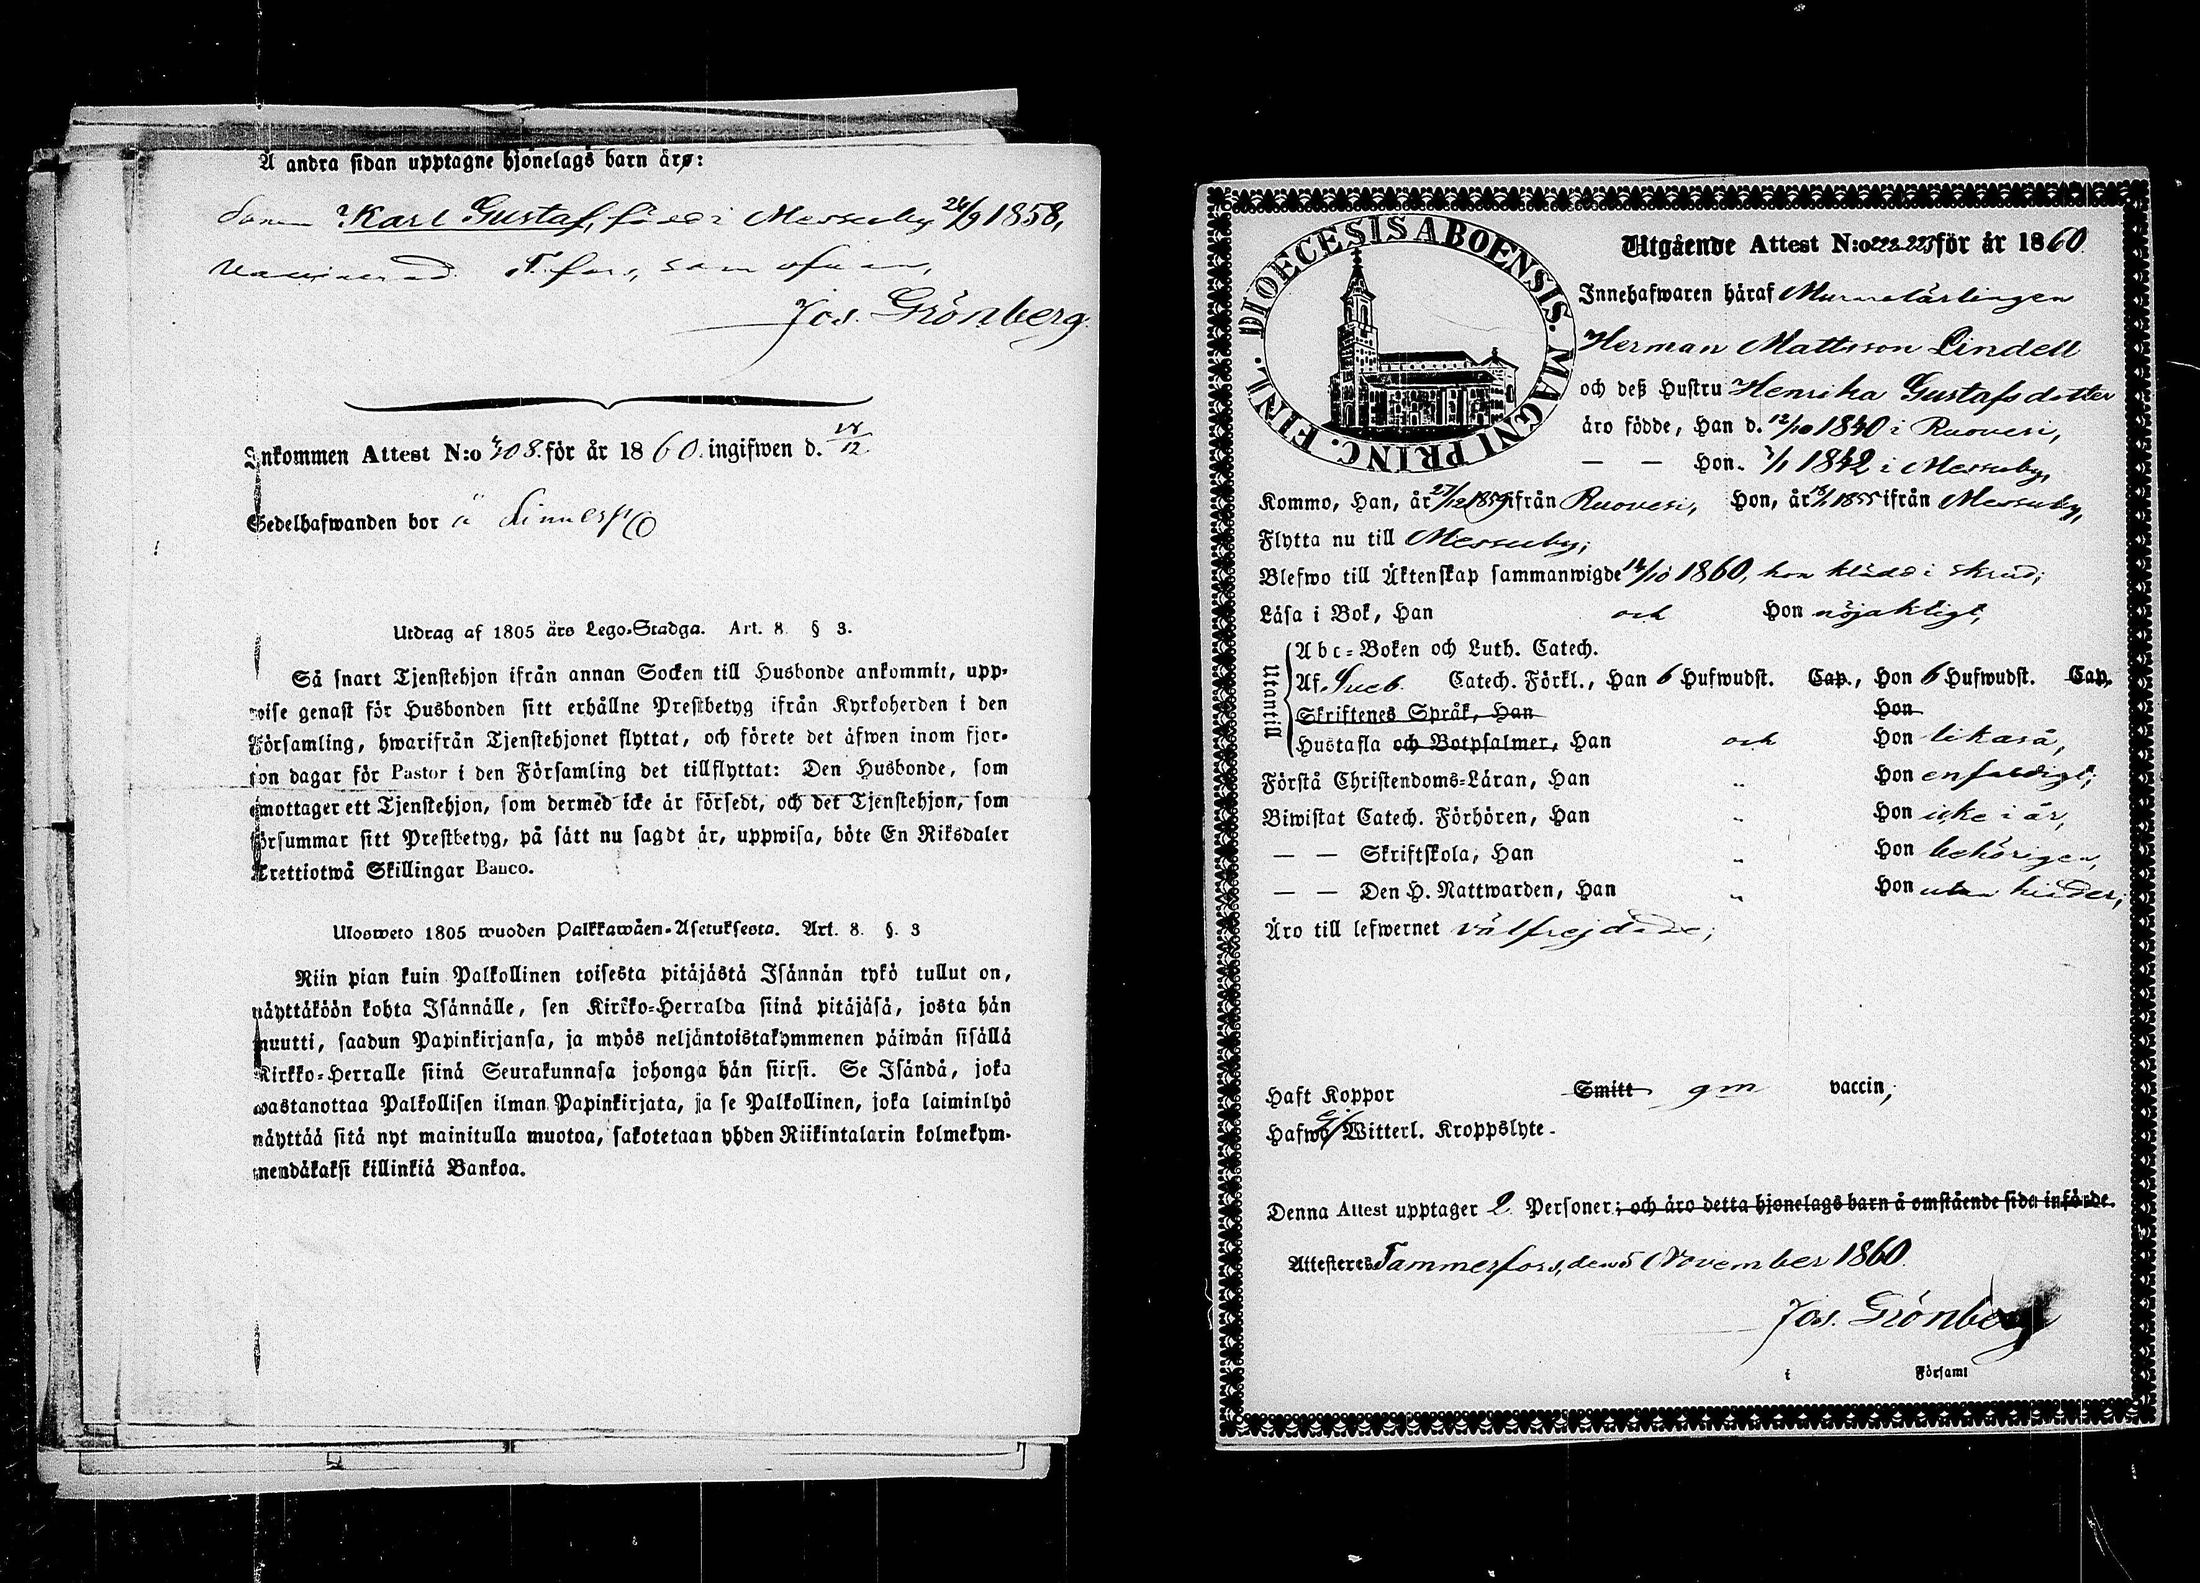 Å andra sidan upptagne hjonelags barn äro:
Sonen Karl Gustaf, född i Messuby 24/9 1858,
vaccinerad T.fors, som ofvan,
Jos. Grönberg
Inkommen Attest N:o 408. för år 1860. ingifwen d. 18/12
Sedelhafwanden bor å
Utdrag af 1805 års Lego-Stadga. Art. 8. § 3.
Så snart Tjenstehjon ifrån annan Socken till Husbonde ankommit, upp-
wise genast för Husbonden sitt erhållne Prestbetyg ifrån Kyrkoherden i den
Församling, hwarifrån Tjenstehjonet flyttat, och förete det äfwen inom fjor-
ton dagar för Pastor i den Församling det tillflyttat: Den Husbonde, som
emottager ett Tjenstehjon, som dermed icke är försedt, och det Tjenstehjon, som
försummar sitt Prestbetyg, på sätt nu sagdt är, uppwisa, böte En Riksdaler
Trettiotwå Skillingar Banco.
Ulosweto 1805 wuoden Palkkawäen-Asetuksesta. Art. 8. §. 3
Niin pian kuin Palkollinen toisesta pitäjästä Isännän tykö tullut on,
näyttäköön kohta Isännälle, sen Kirkko-Herralda siinä pitäjäsä, josta hän
muutti, saadun Papinkirjansa, ja myös neljäntoistakymmenen päiwän sisällä
Kirkko-Herralle siinä Seurakunnasa johonga hän siirsi. Se Isändä, joka
wastanottaa Palkollisen ilman Papinkirjata, ja se Palkollinen, joka laiminlyö
näyttää sitä nyt mainitulla muotoa, sakotetaan yhden Riikintalarin kolmekym-
mendäkaksi killinkiä Bankoa.
DIOECESIS ABOENSIS. MAGNI PRINC. FINL.
Utgående Attest N:o 222-223 för år 1860.
Innehafwaren häraf Murarelärlingen
Herman Mattsson Lindell
och deß Hustru Henrika Gustafsdotter
äro födde, Han d. 12/10 1840 i Ruovesi,
— — Hon. 7/1 1842 i Messuby,
Kommo, Han, år 27/12 1859 ifrån Ruovesi, Hon, år 1855 ifrån Messuby,
Flytta nu till Messuby;
Blefwo till Äktenskap sammanwigde 14/10 1860, hon klädd i skrud;
Läsa i Bok, Han och Hon nöjaktigt,
Utantill
Abc-Boken och Luth. Catech.
Af Sveb. Catech. Förkl., Han 6 Hufwudst. Cap., Hon 6 Hufwudst. Cap.
Skriftenes Språk, Han Hon
Hustafla och Botpsalmer, Han och Hon likaså,
Förstå Christendoms-Läran, Han " Hon enfaldigt;
Biwistat Catech. Förhören, Han " Hon icke i år,
— — Skriftskola, Han " Hon behörigen,
— — Den H. Nattwarden, Han " Hon utan hinder;
Äro till lefwernet välfrejdade;
Haft Koppor Smitt gm vaccin;
Hafwa ej Witterl. Kroppslyte.
Denna Attest upptager 2 Personer; och äro detta hjonelags barn å omstående sida införde.
Attesteres Tammerfors, den 5 November 1860.
Jos. Grönberg
i Församl